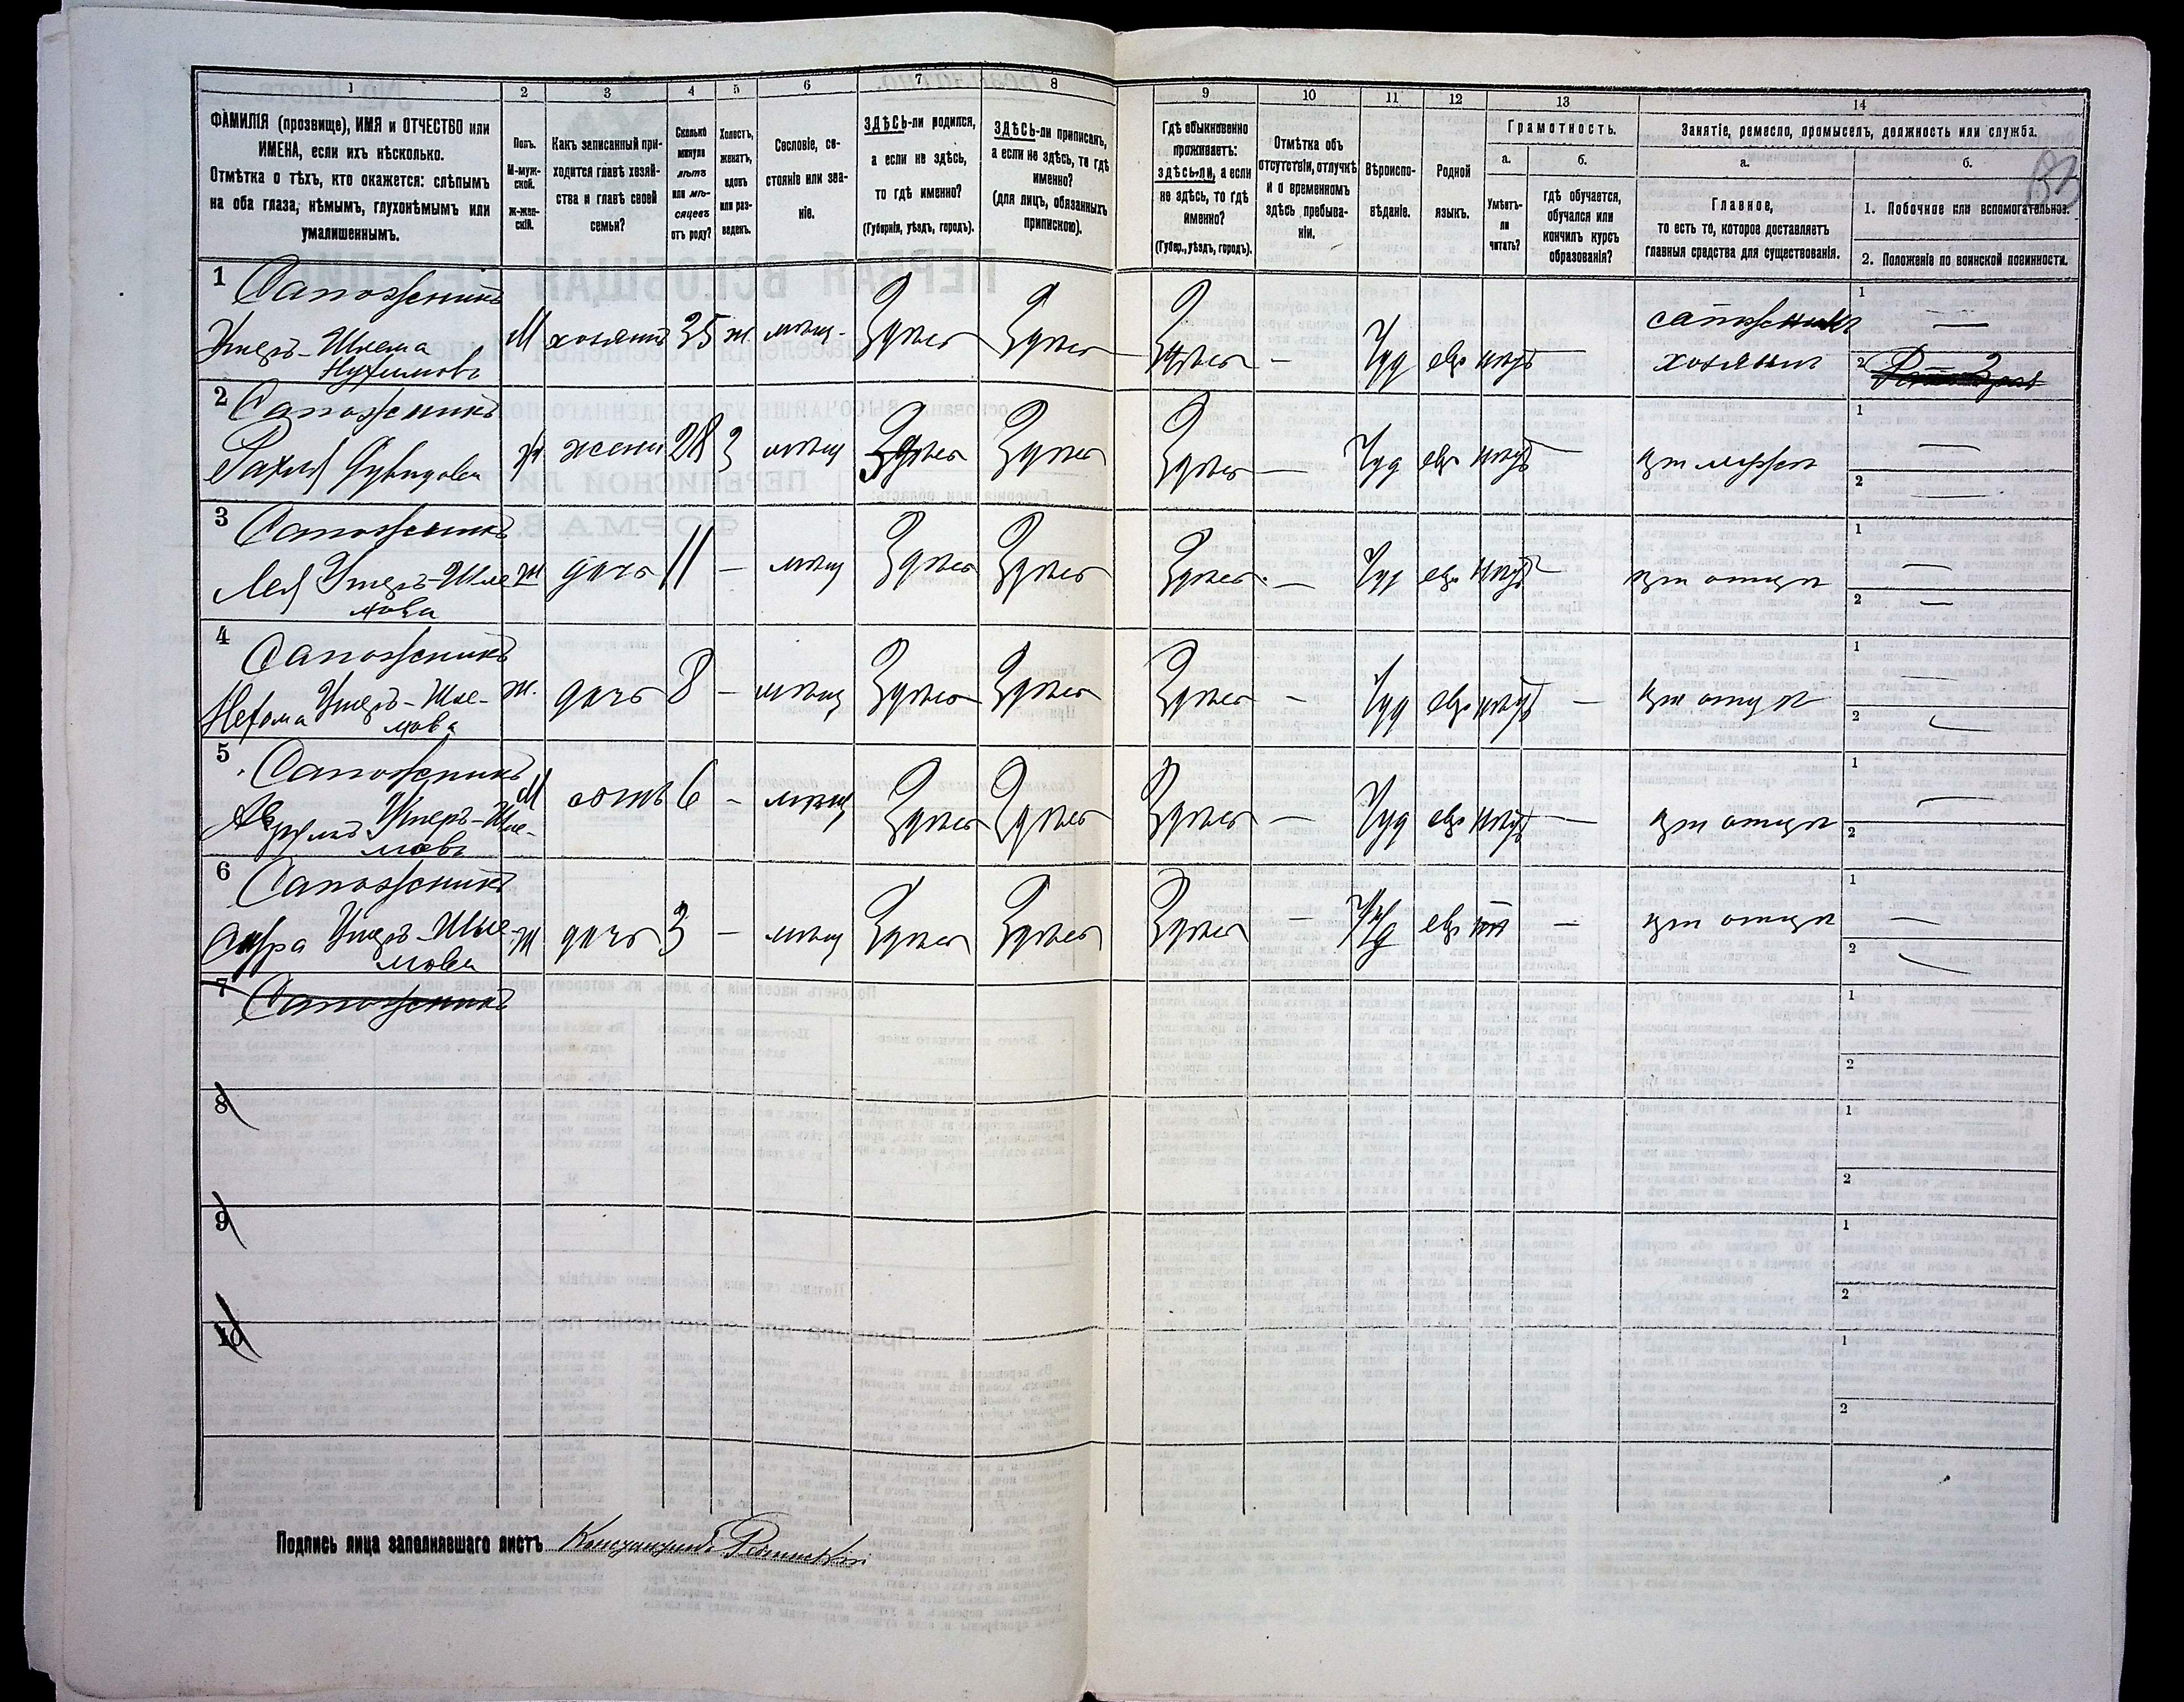 1 2 3 4 5 6 7 8 9 10 11 12 13 14
ФАМИЛІЯ (прозвище), ИМЯ и ОТЧЕСТВО или
ИМЕНА, если ихъ нѣсколько.
Отмѣтка о тѣхъ, кто окажется: слѣпымъ
на оба глаза, нѣмымъ, глухонѣмымъ или
умалишеннымъ.
Полъ.
М-муж-
ской.
ж-жен-
скій.
Какъ записанный при-
ходится главѣ хозяй-
ства и главѣ своей
семьи?
Сколько
минуло
лѣтъ
или мѣ-
сяцевъ
отъ роду?
Холостъ,
женатъ,
вдовъ
или раз-
веденъ.
Сословіе, со-
стояніе или зва-
ніе.
ЗДѢСЬ-ли родился,
а если не здѣсь,
то гдѣ именно?
(Губернія, уѣздъ, городъ).
ЗДѢСЬ-ли приписанъ,
а если не здѣсь, то гдѣ
именно?
(для лицъ, обязанныхъ
припискою).
Гдѣ обыкновенно
проживаетъ:
здѣсь-ли, а если
не здѣсь, то гдѣ
именно?
(Губер., уѣздъ, городъ).
Отмѣтка объ
отсутствіи, отлучкѣ
и о временномъ
здѣсь пребыва-
ніи.
Вѣроиспо-
вѣданіе.
Родной
языкъ.
Грамотность.
а.
Умѣетъ-
ли
читать?
б.
гдѣ обучается,
обучался или
кончилъ курсъ
образованія?
Занятіе, ремесло, промыселъ, должность или служба.
а.
Главное,
то есть то, которое доставляетъ
главныя средства для существованія.
б.
1. Побочное или вспомогательное.
2. Положеніе по воинской повинности.
1 Сапожникъ
Умеръ-Шлема
Нухимовъ
М хозяинъ 35 ж мѣщ. Здѣсь Здѣсь Здѣсь — Іуд евр нѣтъ — сапожникъ
хозяинъ
1 —
2
2 Сапожникъ
Рахля
ж жена 28 з мѣщ Здѣсь Здѣсь Здѣсь — Іуд евр нѣтъ — при мужѣ
1 —
2 —
3 Сапожникъ
Лея Умеръ-Шле
мова
ж дочь 11 — мѣщ Здѣсь Здѣсь Здѣсь — Іуд евр нѣтъ — при отцѣ
1 —
2 —
4 Сапожникъ
Нехама Умеръ-Шле-
мова
ж. дочь 8 — мѣщ Здѣсь Здѣсь Здѣсь — Іуд евр нѣтъ — при отцѣ
1 —
2 —
5 Сапожникъ
Умеръ-Шле-
мовъ
М сынъ 6 — мѣщ Здѣсь Здѣсь Здѣсь — Іуд евр нѣтъ — при отцѣ
1 —
2
6 Сапожникъ
Сура Умеръ-Шле-
мова
ж дочь 3 — мѣщ Здѣсь Здѣсь Здѣсь — Іуд евр — при отцѣ
1 —
2 —
7 Сапожникъ
1
2
8
1
2
9
1
2
10
1
2
Подпись лица заполнявшаго листъ